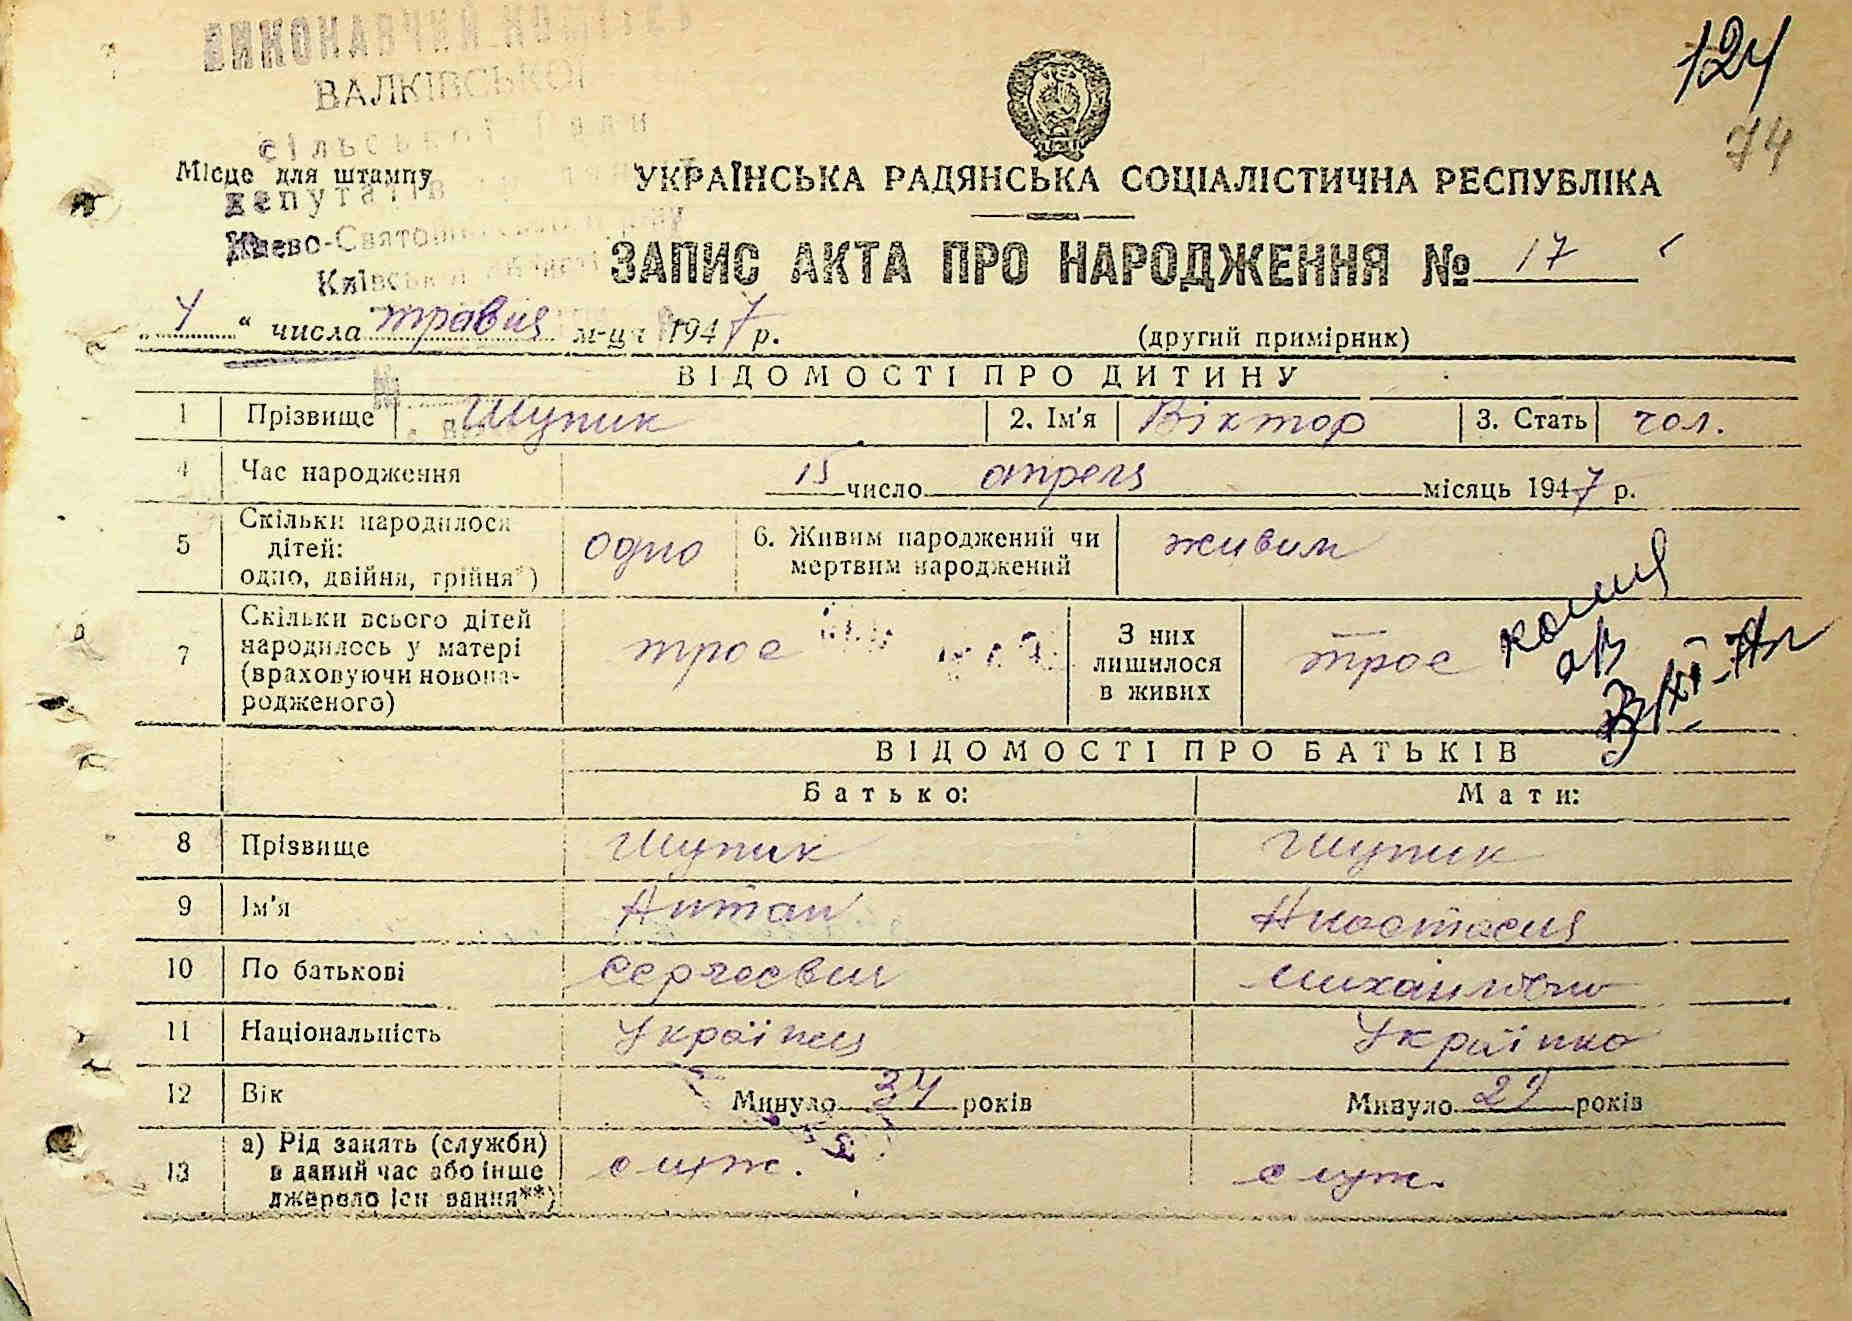 ВИКОНАВЧИЙ КОМІТЕТ
ВАЛКІВСЬКОЇ
сільської Ради
депутатів
Києво-Святошинського р-ну
Київської області
Місце для штампу
124
74
УКРАЇНСЬКА РАДЯНСЬКА СОЦІАЛІСТИЧНА РЕСПУБЛІКА
ЗАПИС АКТА ПРО НАРОДЖЕННЯ № 17
„ 4 “ числа травня м-ця 1947 р.
(другий примірник)
ВІДОМОСТІ ПРО ДИТИНУ
1 Прізвище Шупик 2. Ім'я Віктор 3. Стать чол.
4 Час народження 15 число апреля місяць 1947 р.
5 Скільки народилося дітей: одно, двійня, трійня*) одно 6. Живим народжений чи мертвим народжений живим
7 Скільки всього дітей народилось у матері (враховуючи новонародженого) троє З них лишилося в живих троє
копия
ав
ВІДОМОСТІ ПРО БАТЬКІВ
Батько: Мати:
8 Прізвище Шупик Шупик
9 Ім'я Антон Анастасия
10 По батькові Сергєєвич Михайловна
11 Національність Українец Українка
12 Вік Минуло 34 років Минуло 29 років
13 а) Рід занять (служби) в даний час або інше джерело існування**) служ. служ.